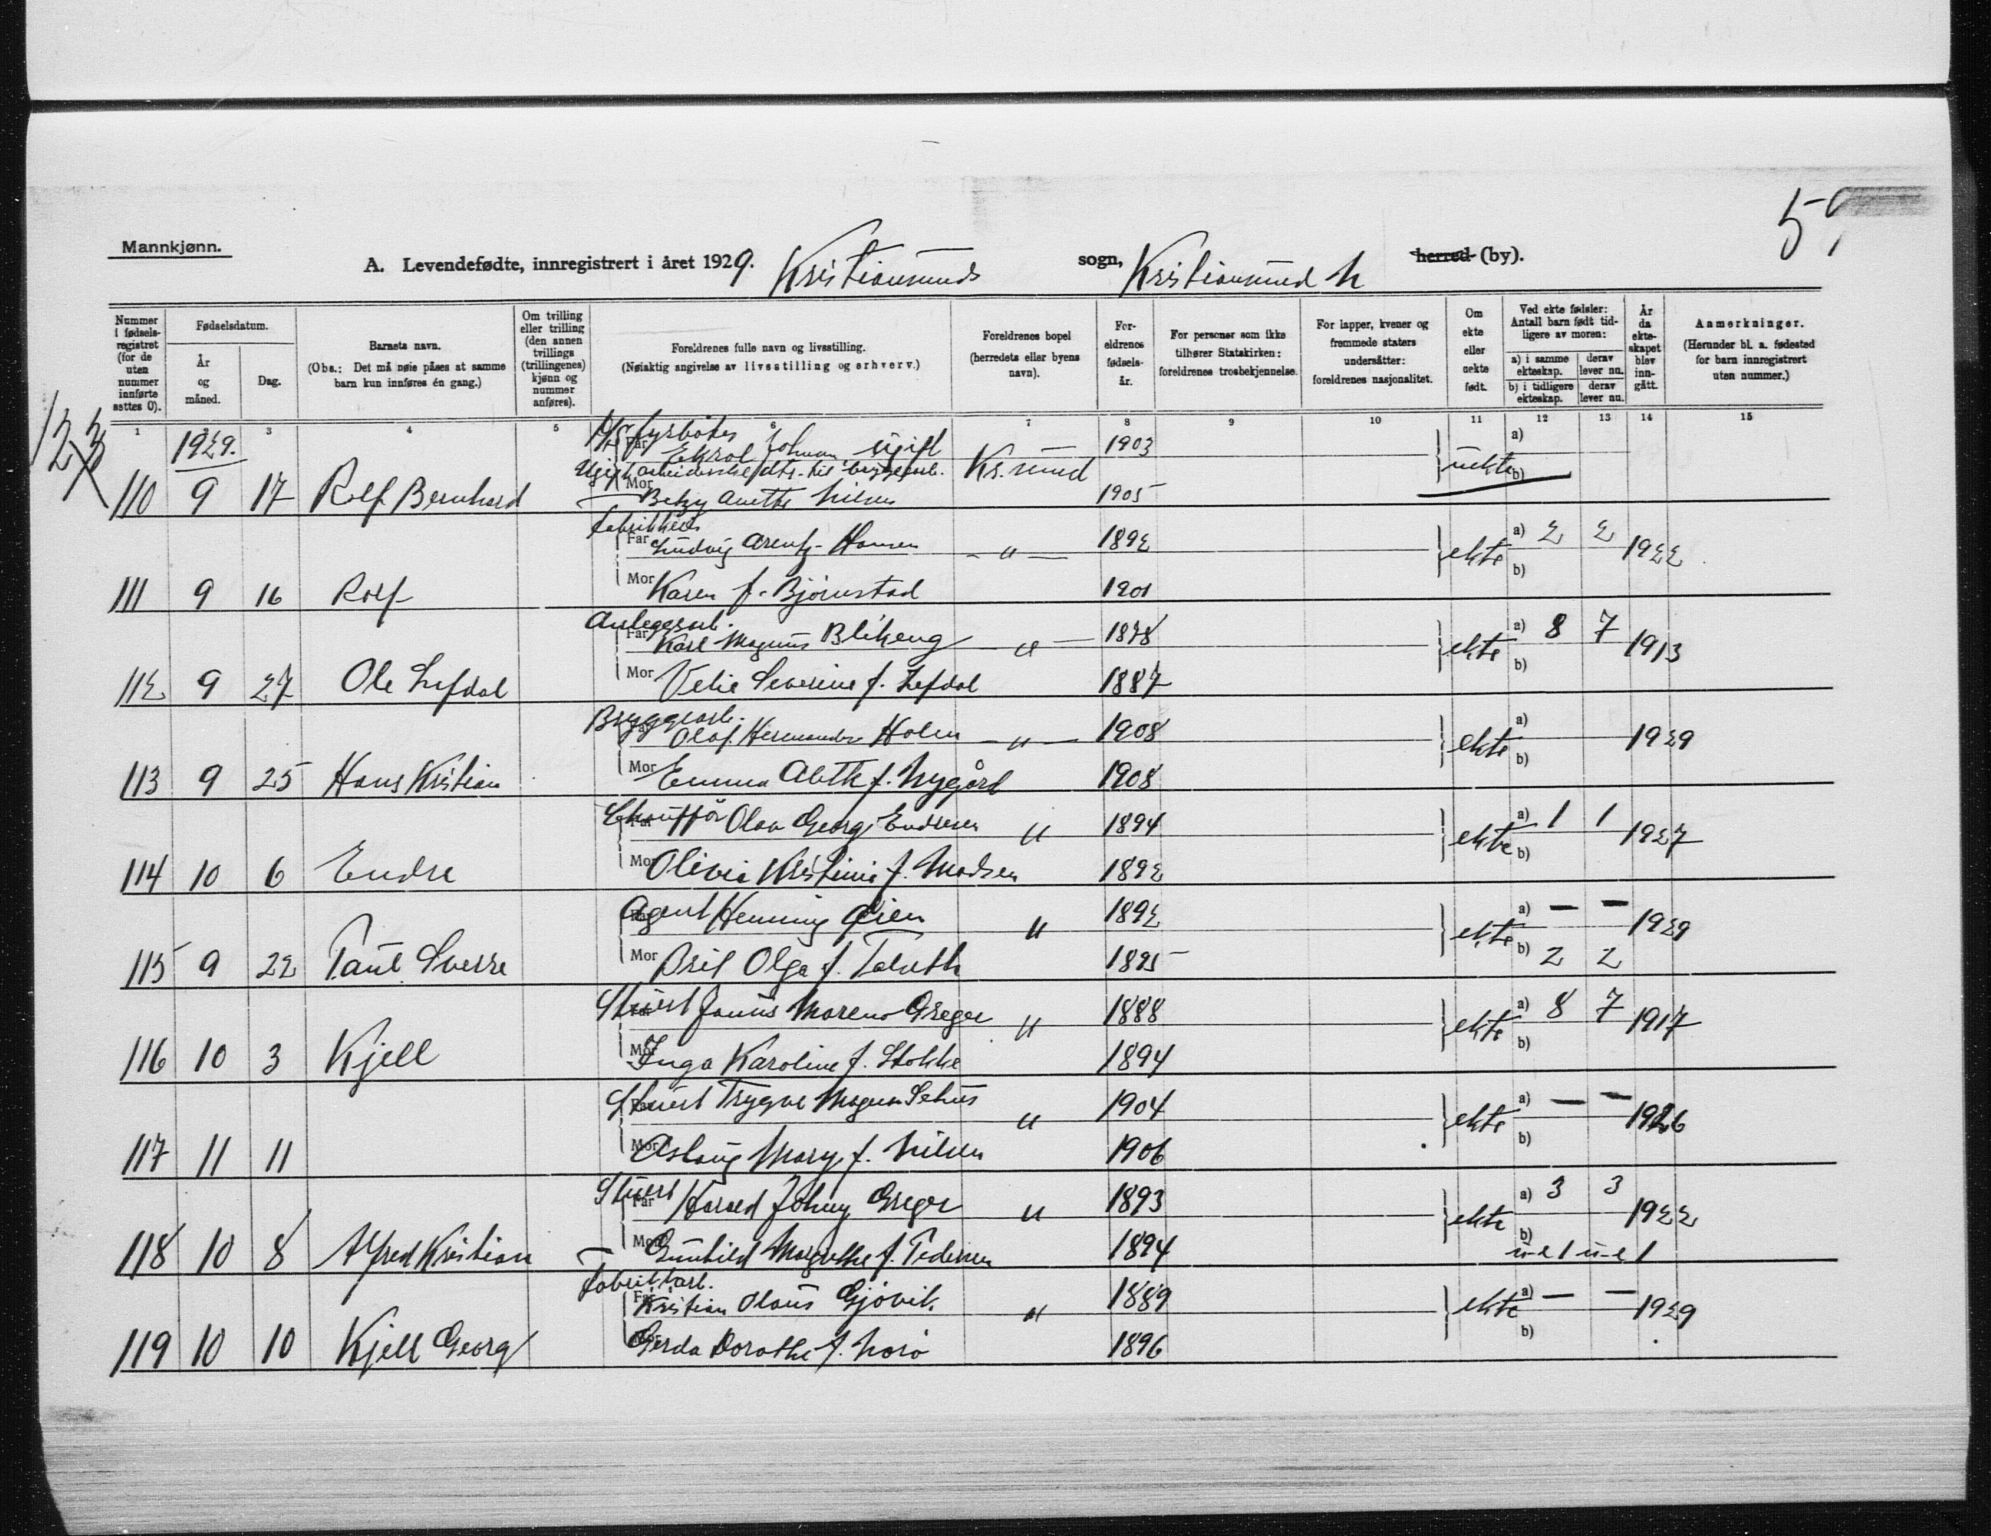 59
Mannkjønn.
A. Levendefødte, innregistrert i året 1929. Kristiansunds sogn, Kristiansund N herred (by).
Nummer i fødselsregistret (for de uten nummer innførte settes 0).
Fødselsdatum.
År og måned.
Dag.
Barnets navn.
(Obs.: Det må nøie påses at samme barn kun innføres én gang.)
Om tvilling eller trilling (den annen tvillings (trillingenes) kjønn og nummer anføres).
Foreldrenes fulle navn og livsstilling.
(Nøiaktig angivelse av livsstilling og erhverv.)
Foreldrenes bopel (herredets eller byens navn).
Foreldrenes fødselsår.
For personer som ikke tilhører Statskirken: foreldrenes trosbekjennelse.
For lapper, kvener og fremmede staters undersåtter: foreldrenes nasjonalitet.
Om ekte eller uekte født.
Ved ekte fødsler: Antall barn født tidligere av moren:
a) i samme ekteskap.
derav lever nu.
b) i tidligere ekteskap.
derav lever nu.
År da ekteskapet blev inngått.
Anmerkninger.
(Herunder bl. a. fødested for barn innregistrert uten nummer.)
1 3 4 5 6 7 8 9 10 11 12 13 14 15
1929.
Far Johan ugift 1903
Ugift
110 9 17 Rolf Bernhard Mor Betzy Anette Nilsen Kr.sund 1905 uekte a) b)
Far Ludvig Arentz Hansen — " — 1892 ekte a) 2 2 1922
111 9 16 Rolf Mor Karen f. Bjørnstad 1901 b)
Anleggsarb.
Far Karl Magnus Blikeng — " — 1878 ekte a) 8 7 1913
112 9 27 Ole Lefdal Mor Severine f. Lefdal 1887 b)
Bryggearb.
Olaf Holm — " — 1908 ekte a) 1929
113 9 25 Hans Kristian Mor Emma f. Nygård 1908 b)
Chauffør Olav Georg Endresen " 1894 ekte a) 1 1 1927
114 10 6 Endre Mor Olivia f. Madsen 1892 b)
Agent Henning Øien " 1892 ekte a) — — 1929
115 9 22 Paul Sverre Mor Brit Olga f. Talseth 1895 b) 2 2
Stuert Greger " 1888 ekte a) 8 7 1917
116 10 3 Kjell Mor Inga Karoline f. Stokke 1894 b)
Stuert Trygve Magnus " 1904 ekte a) — — 1926
117 11 11 Mor Aslaug Mary f. Nilsen 1906 b)
Stuert Far Harald Johny Greger " 1893 ekte a) 3 3 1922
118 10 8 Alfred Kristian Mor Gunhild Margrethe f. Pedersen 1894 b) u-e 1 u-e 1
Fabrikkarb.
Far Kristian Olaus Gjøvik " 1889 ekte a) — — 1929
119 10 10 Kjell Georg Mor Gerda Dorothe f. Norø 1896 b)